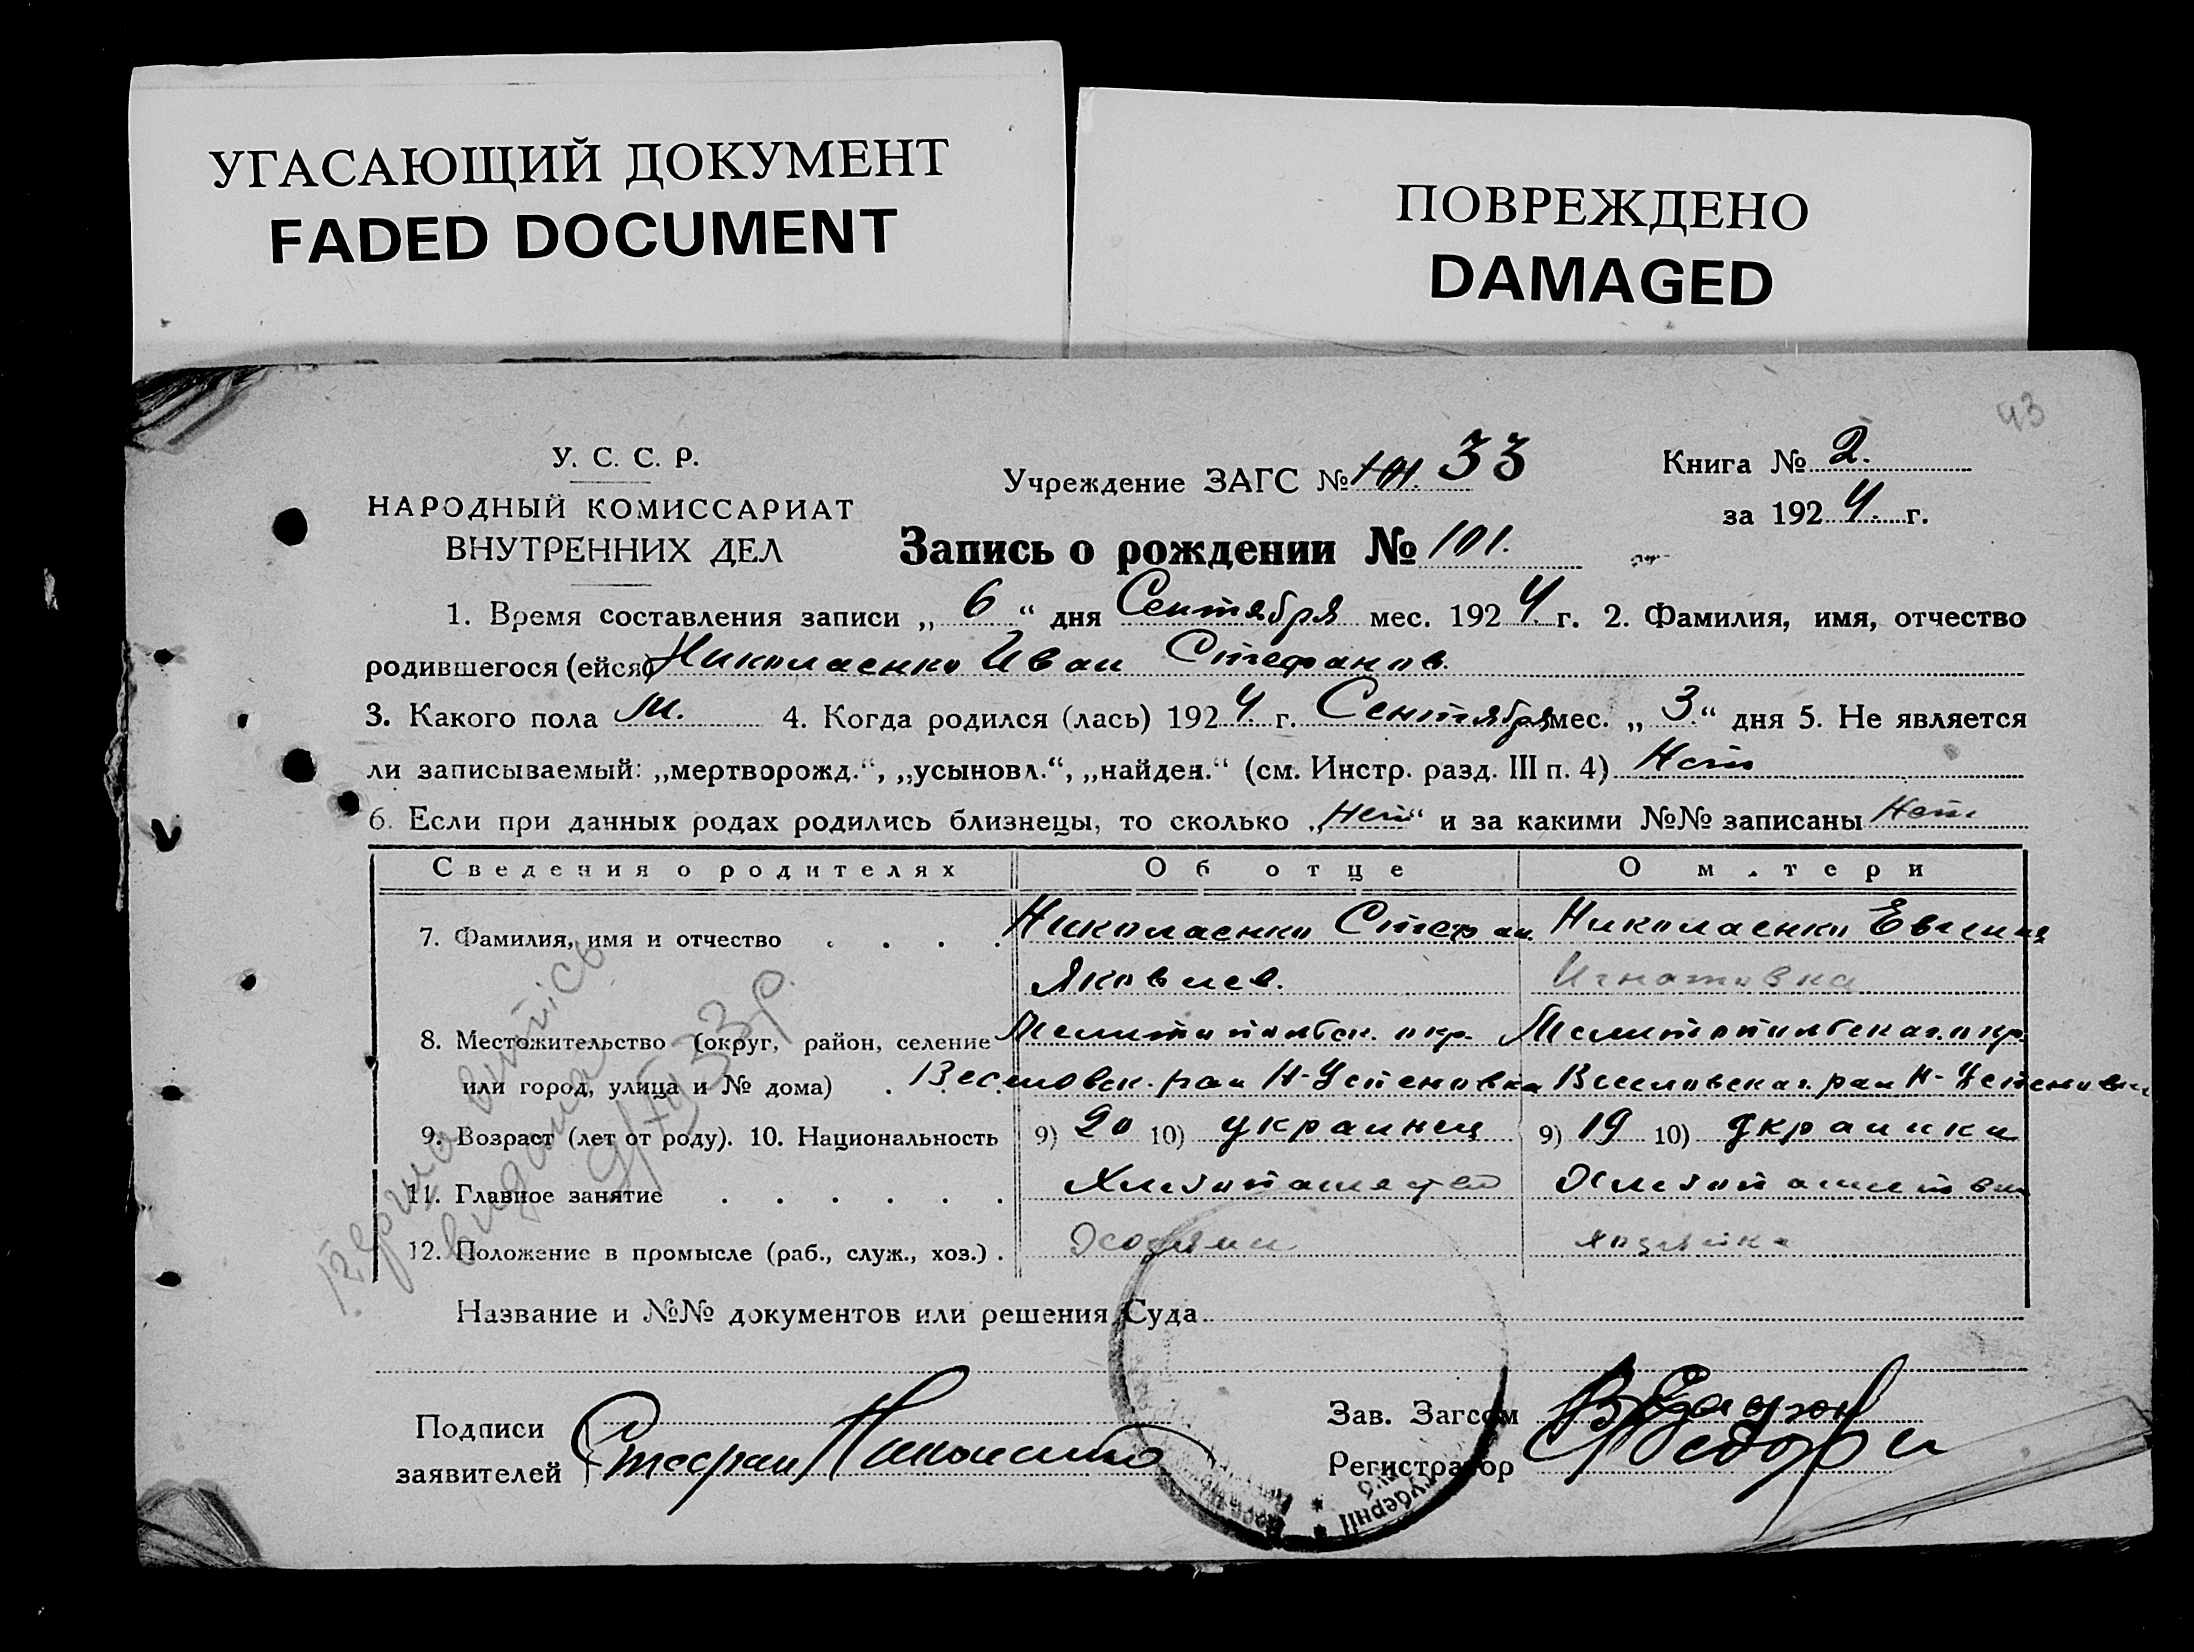 УГАСАЮЩИЙ ДОКУМЕНТ
FADED DOCUMENT
ПОВРЕЖДЕНО
DAMAGED
43
У. С. С. Р.
НАРОДНЫЙ КОМИССАРИАТ
ВНУТРЕННИХ ДЕЛ
Учреждение ЗАГС № 101. 33
Книга № 2.
за 1924 г.
Запись о рождении № 101.
1. Время составления записи „ 6 “ дня Сентября мес. 1924 г. 2. Фамилия, имя, отчество
родившегося (ейся) Николаенко Иван Стефанов.
3. Какого пола м. 4. Когда родился (лась) 1924 г. Сентября мес. „ 3. “ дня 5. Не является
ли записываемый: „мертворожд.“, „усыновл.“, „найден.“ (см. Инстр. разд. III п. 4) Нет
6. Если при данных родах родились близнецы, то сколько „Нет“ и за какими №№ записаны Нет
Сведения о родителях Об отце О м.тери
7. Фамилия, имя и отчество . . . . Николаенко Стефан Николаенко Евгения
Яковлев. Игнатовна
8. Местожительство (округ, район, селение Мелитопольск. окр. Мелитопольская окр.
или город, улица и № дома) . . . Веселовск. рай Н-Успеновка Веселовская рай Н-Успеновка
9. Возраст (лет от роду). 10. Национальность 9) 20 10) украинец 9) 19 10) украинка
11. Главное занятие . . . . . . Хлебопашество Хлебопашество
12. Положение в промысле (раб., служ., хоз.) . Хозяин хозяйка
Название и №№ документов или решения Суда
Подписи
заявителей Стефан Николаенко
Зав. Загсом
Регистратор
Перша випись
видана
33 р.
губернії